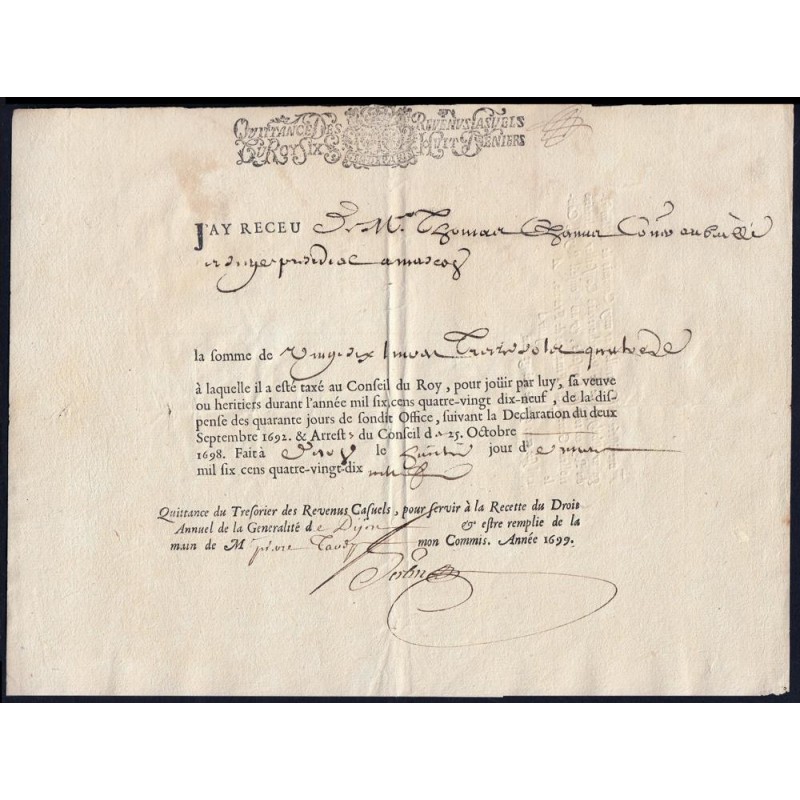 QUITTANCE DES REVENUS CASUELS
DU ROY SIX HUIT DENIERS
J'AY RECEU De Mr. Thomas Chanu
presidial a mascon
la somme de livres Treize sols quatre d
à laquelle il a esté taxé au Conseil du Roy, pour joüir par luy, sa veuve
ou heritiers durant l'année mil six cens quatre-vingt dix-neuf, de la dis-
pense des quarante jours de sondit Office, suivant la Declaration du deux
Septembre 1692. & Arrest du Conseil de 25. Octobre
1698. Fait à le jour de mars
mil six cens quatre-vingt-dix neuf
Quittance du Tresorier des Revenus Casuels, pour servir à la Recette du Droit
Annuel de la Generalité de Dijon & estre remplie de la
main de M pierre mon Commis. Année 1699.